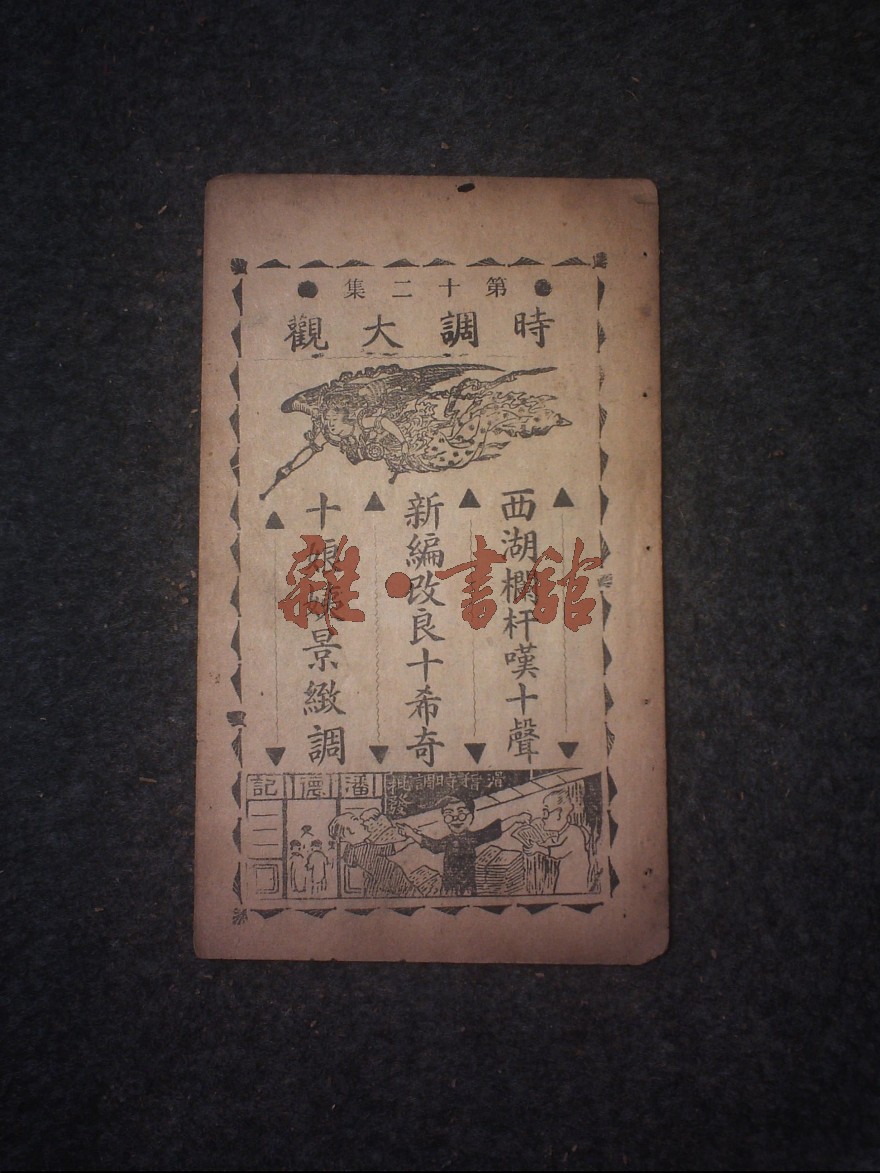 第十二集
時調大觀
西湖欄杆嘆十聲
新編改良十希奇
十娘姨景緻調
滑稽時調批發
潘德記
雜·書舘